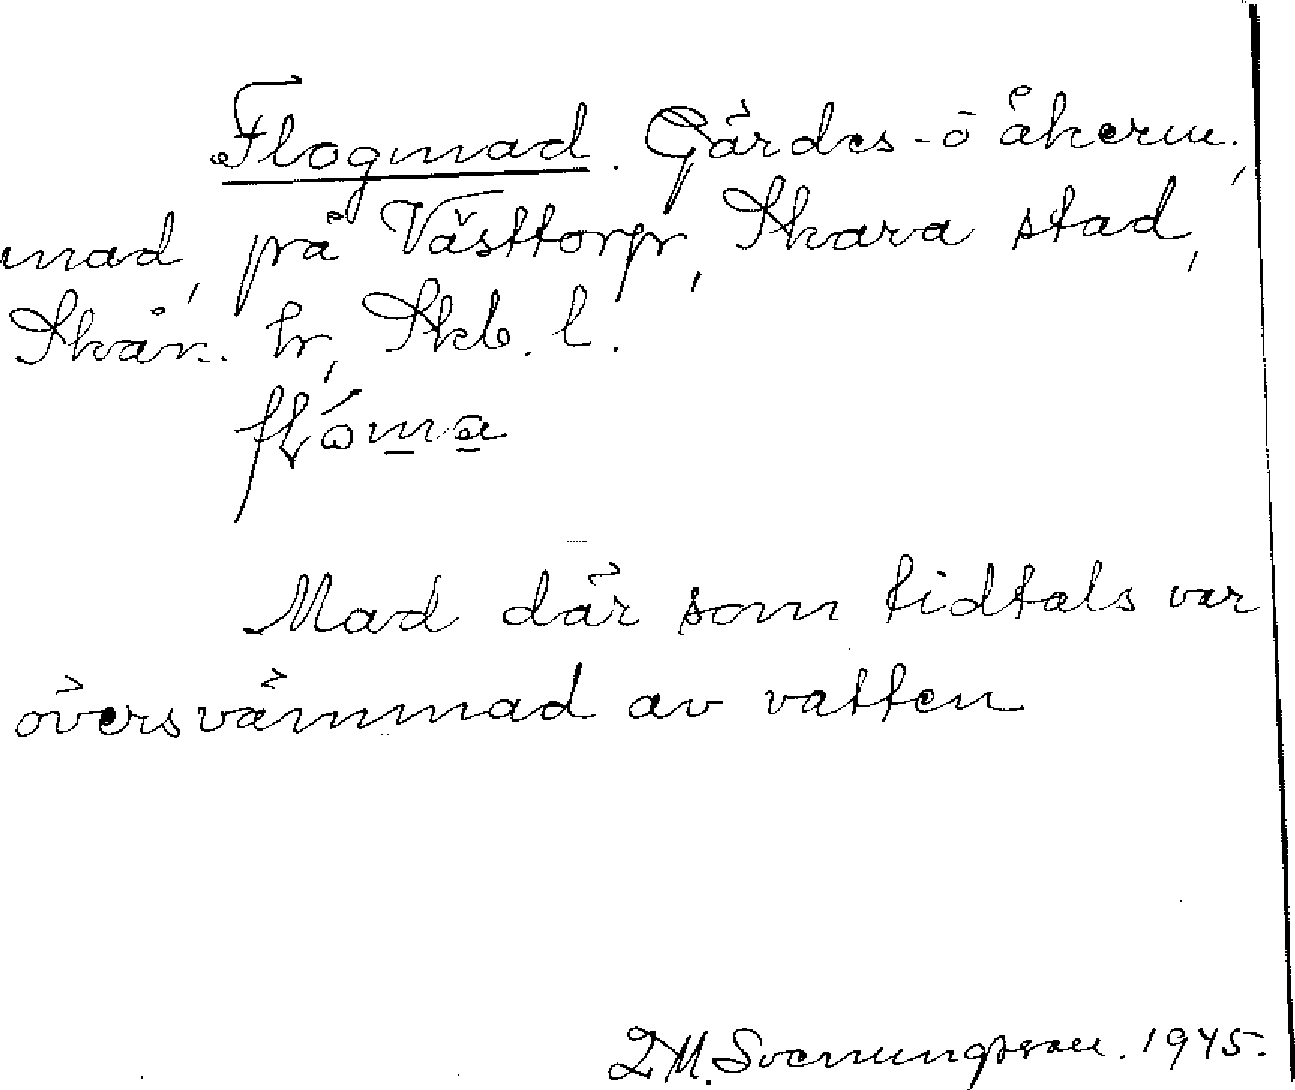 Flogmad. Gärdes- o åkerm.,
mad, på Västtorp, Skara stad,
Skån. hr, Skb. l.
Mad där som tidtals var
översvämmad av vatten
D.M. Svenungsson. 1945.